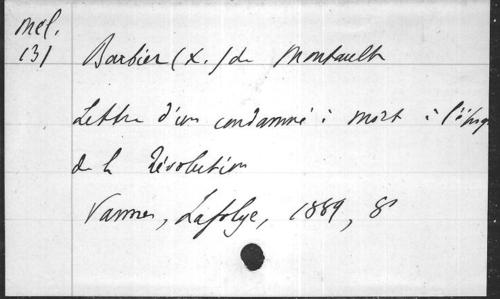 Mel.
131
Barbier (X.) de Montault
Lettre d'un condamné à mort à l'époq
de la Révolution
Vannes, Lafolye, 1889, 8°